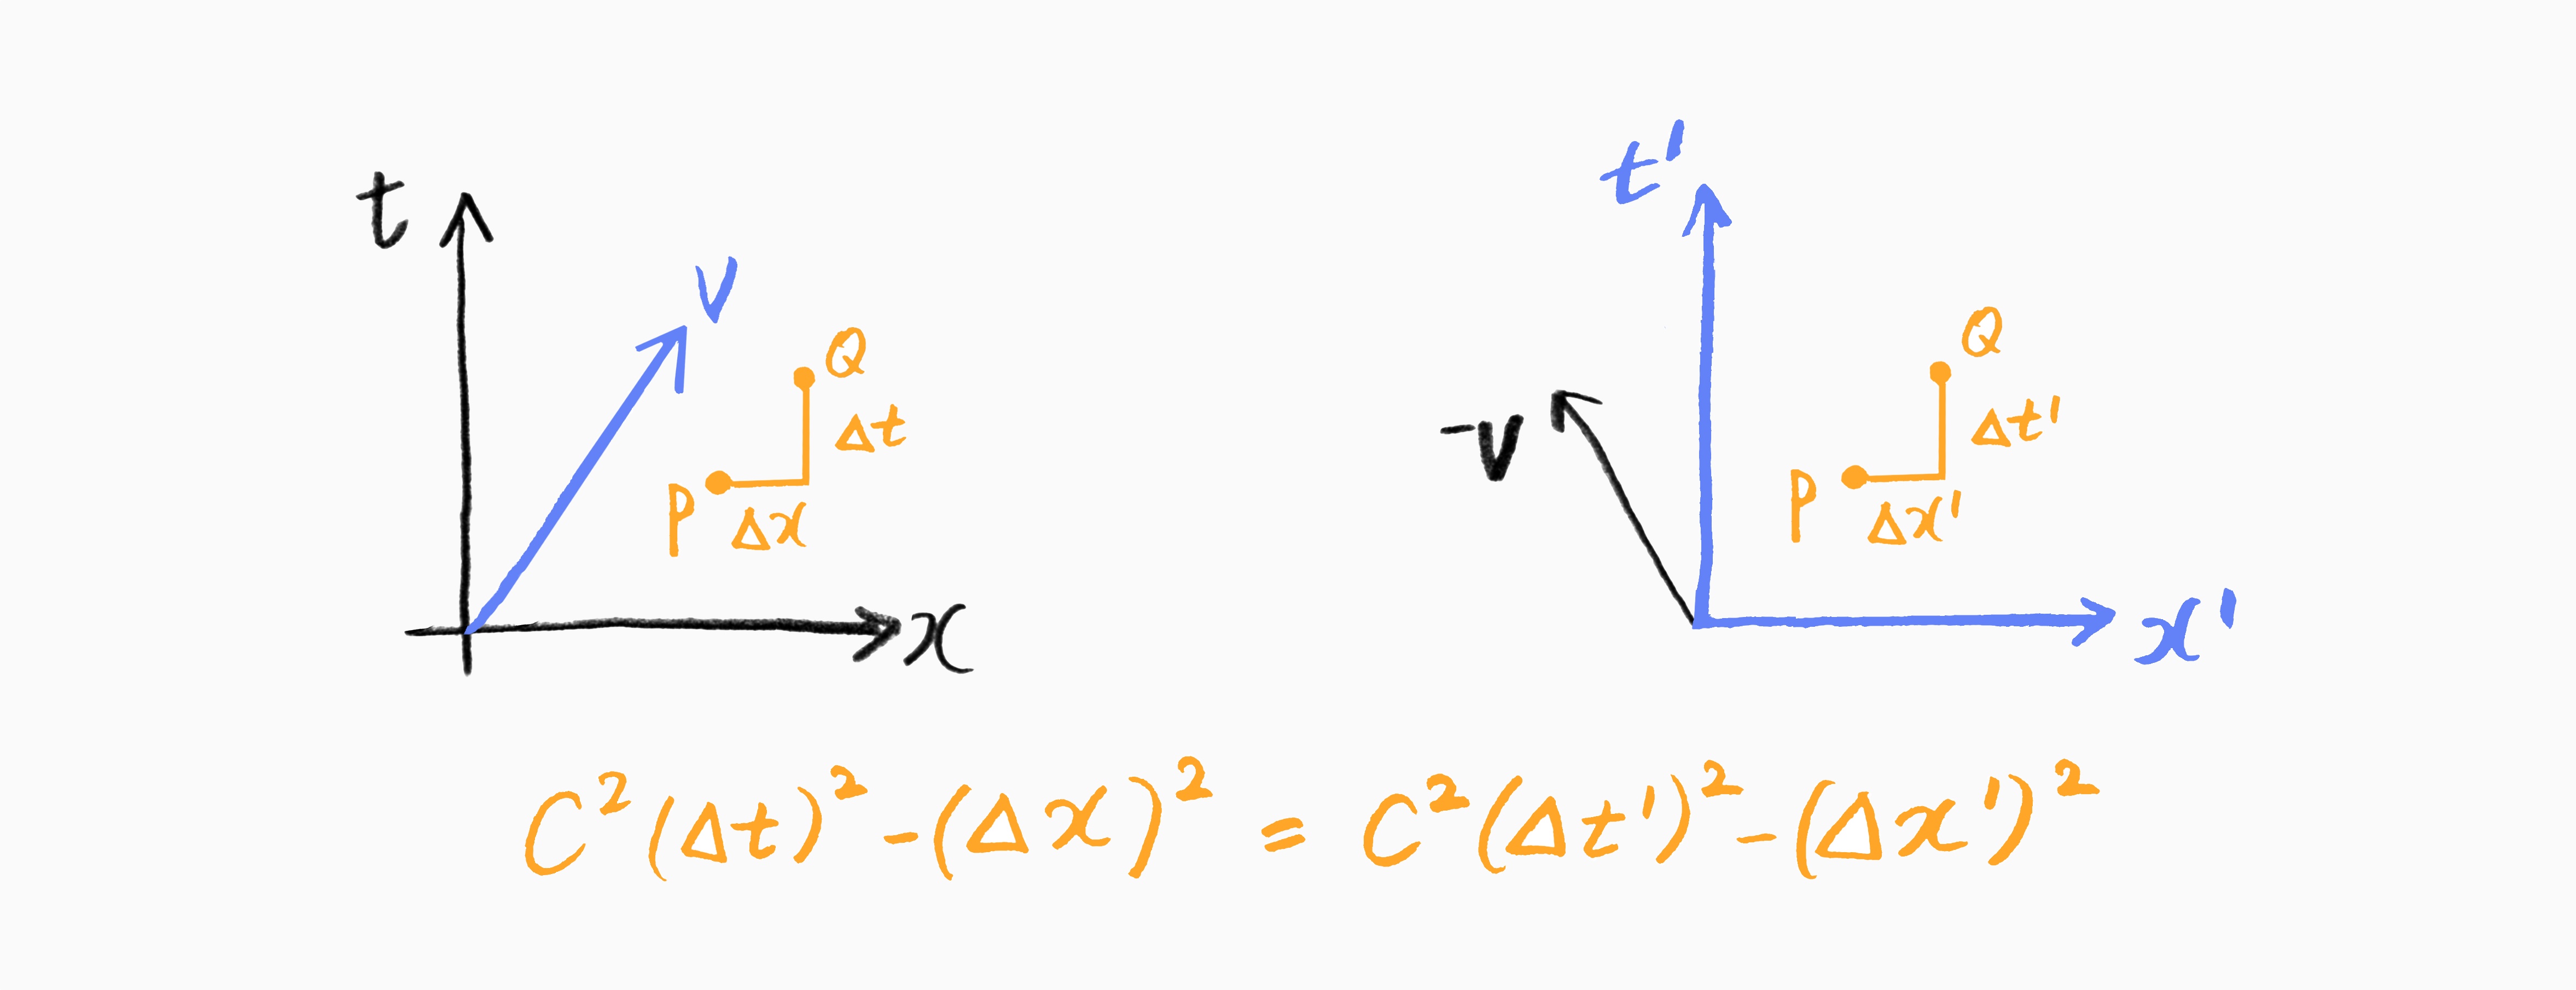 t
V
Q
Δt
P
Δx
x
t'
Q
-V
Δt'
P
Δx'
x'
C²(Δt)² - (Δx)² = C²(Δt')² - (Δx')²